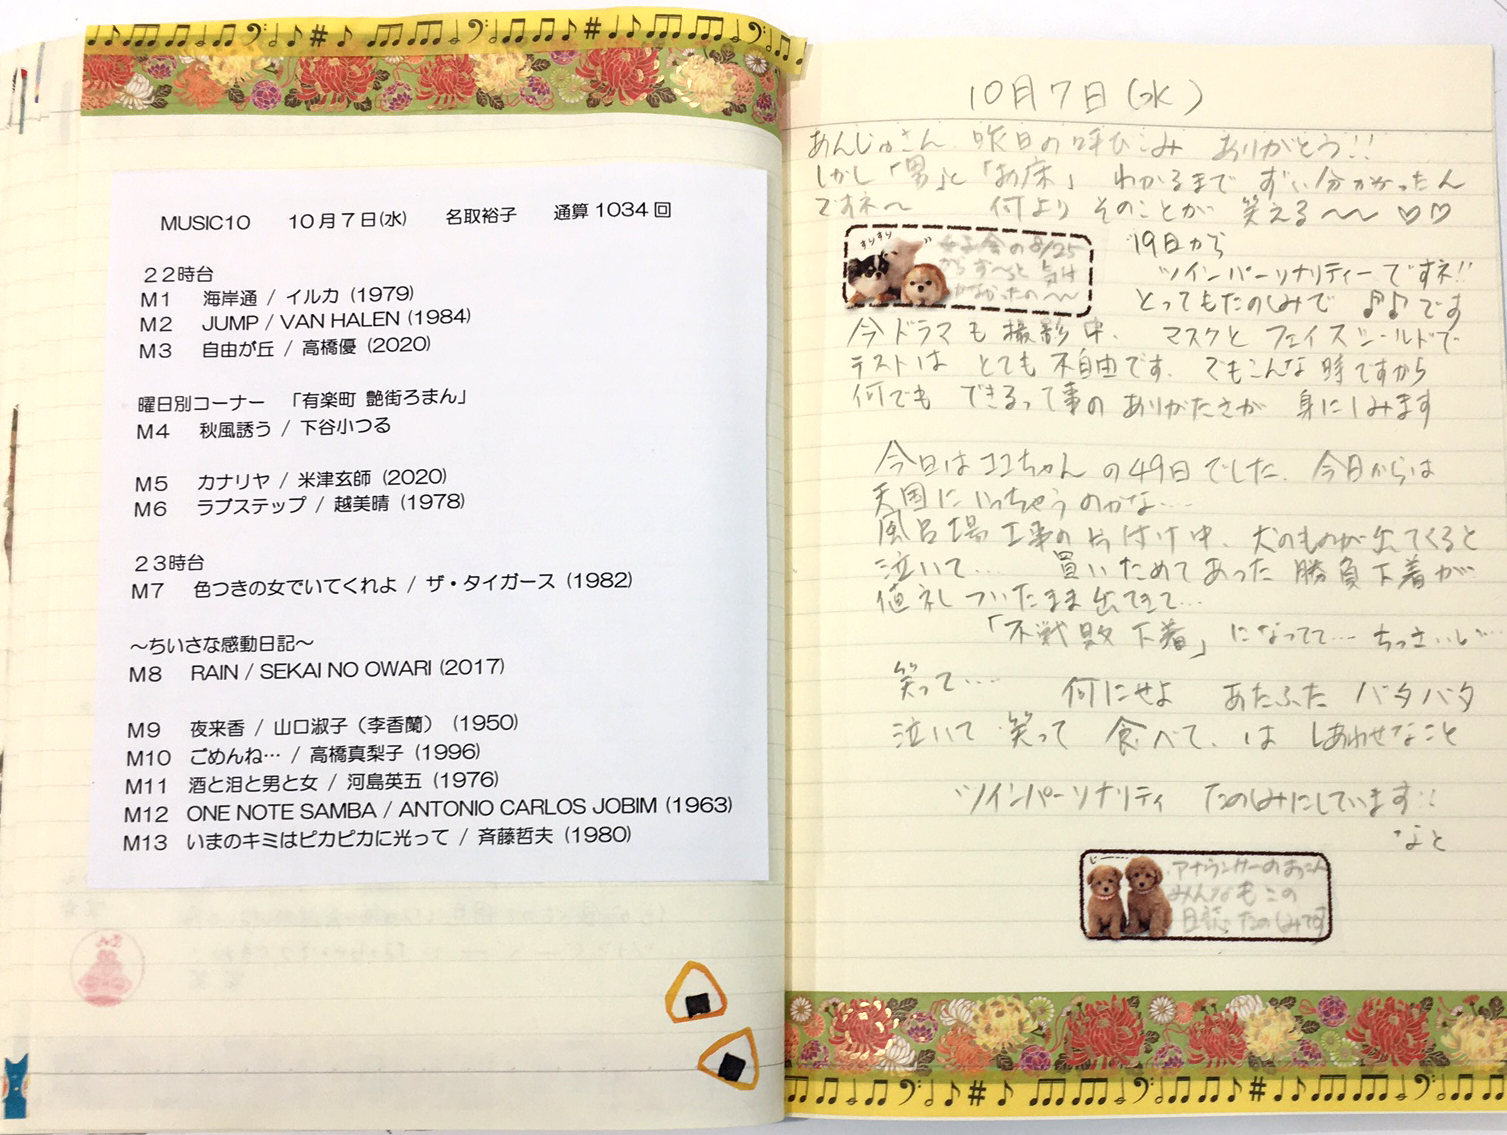 MUSIC10 10月7日(水) 名取裕子 通算1034回
22時台
M1 海岸通 / イルカ (1979)
M2 JUMP / VAN HALEN (1984)
M3 自由が丘 / 高橋優 (2020)
曜日別コーナー 「有楽町 艶街ろまん」
M4 秋風誘う / 下谷小つる
M5 カナリヤ / 米津玄師 (2020)
M6 ラブステップ / 越美晴 (1978)
23時台
M7 色つきの女でいてくれよ / ザ・タイガース (1982)
～ちいさな感動日記～
M8 RAIN / SEKAI NO OWARI (2017)
M9 夜来香 / 山口淑子（李香蘭） (1950)
M10 ごめんね… / 高橋真梨子 (1996)
M11 酒と泪と男と女 / 河島英五 (1976)
M12 ONE NOTE SAMBA / ANTONIO CARLOS JOBIM (1963)
M13 いまのキミはピカピカに光って / 斉藤哲夫 (1980)
10月7日(水)
あんじゅさん 昨日の呼びこみ ありがとう!!
しかし「男」と「お床」 わかるまで ずい分かかったん
ですネ〜 何より そのことが 笑える〜〜 ♡♡
すりすり
女子会の8/25
からず〜っと 気付
かなかったの〜〜
19日から
ツインパーソナリティーですネ!!
とってもたのしみで ♪♪です
今ドラマも撮影中、 マスクと フェイスシールドで
テストは とても 不自由です. でもこんな時ですから
何でも できるって事の ありがたさが 身にしみます
今日はココちゃん の49日でした. 今日からは
天国に いっちゃうのかな…
風呂場工事の片付け中、犬のものが出てくると
泣いて… 買いためてあった 勝負下着が
値札 ついたまま出てきて…
「不戦敗下着」になってて…ちっさいし…
笑って…. 何にせよ あたふた バタバタ
泣いて 笑って 食べて、は しあわせなこと
ツインパーソナリティ たのしみにしています!!
なと
じー
アナウンサーの
みんなもこの
日誌 たのしみです